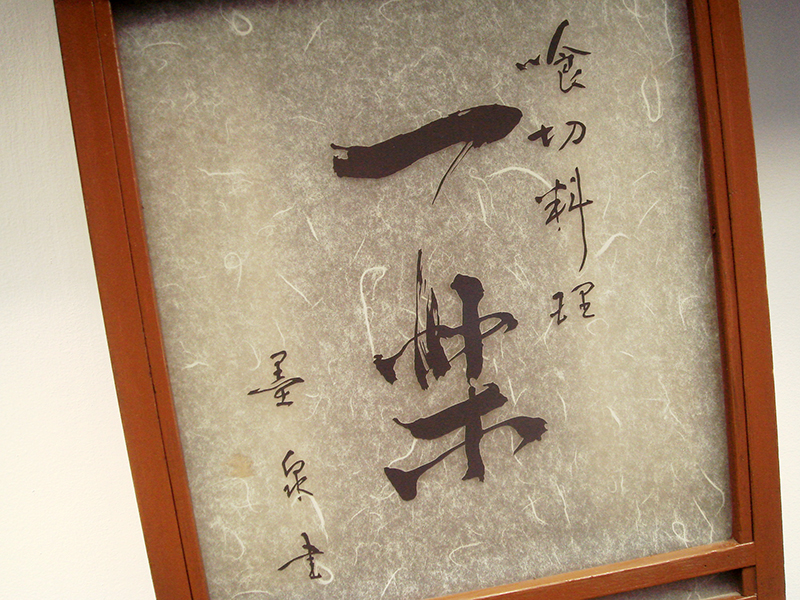 喰切料理
一楽
墨泉書